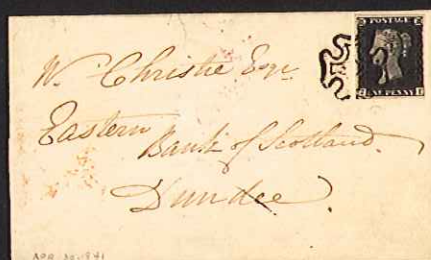 POSTAGE
ONE PENNY
W. Christie Esqr
Eastern
Bank of Scotland.
Dundee.